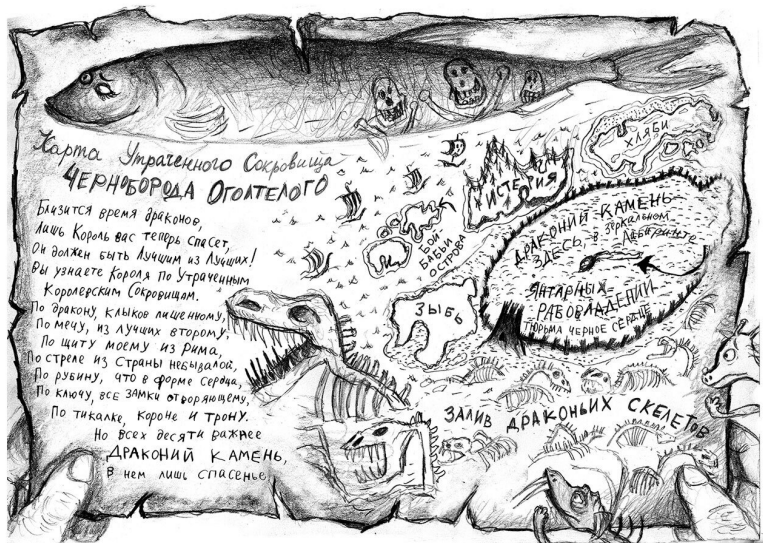 Карта Утраченного Сокровища
ЧЕРНОБОРОДА ОГОЛТЕЛОГО
Близится время драконов,
Лишь Король вас теперь спасет,
Он должен быть Лучшим из Лучших!
Вы узнаете Короля по Утраченным
Королевским Сокровищам.
По дракону, клыков лишенному,
По мечу, из лучших второму,
По щиту моему из Рима,
По стреле из Страны небывалой,
По рубину, что в форме сердца,
По ключу, все замки отворяющему,
По тикалке, короне и трону.
Но всех десяти важнее
ДРАКОНИЙ КАМЕНЬ,
В нем лишь спасенье
ХЛЯБИ
ИСТЕРИЯ
БОЙ
БАБЬИ
ОСТРОВА
ЗЫБЬ
ДРАКОНИЙ КАМЕНЬ
ЗДЕСЬ, в зеркальном
Лабиринте
ЯНТАРНЫХ
РАБОВЛАДЕНИЙ
ТЮРЬМА ЧЕРНОЕ СЕРДЦЕ
ЗАЛИВ ДРАКОНЬИХ СКЕЛЕТОВ